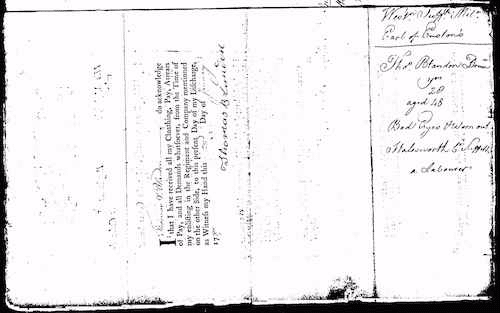 I Thomas Blandon do acknowledge
that I have received all my Clothing, Pay, Arrears
of Pay, and all Demands whatsoever, from the Time of
my enlisting in the Regiment and Company mentioned
on the other Side, to this present Day of my Discharge,
as Witness my Hand this Day of
17
Thomas Blandon
West Suffk Mil
Earl of Euston's
Thos Blandon
yrs
28
aged 48
Bad Eyes & Worn out
Halesworth Suffolk
a Labourer